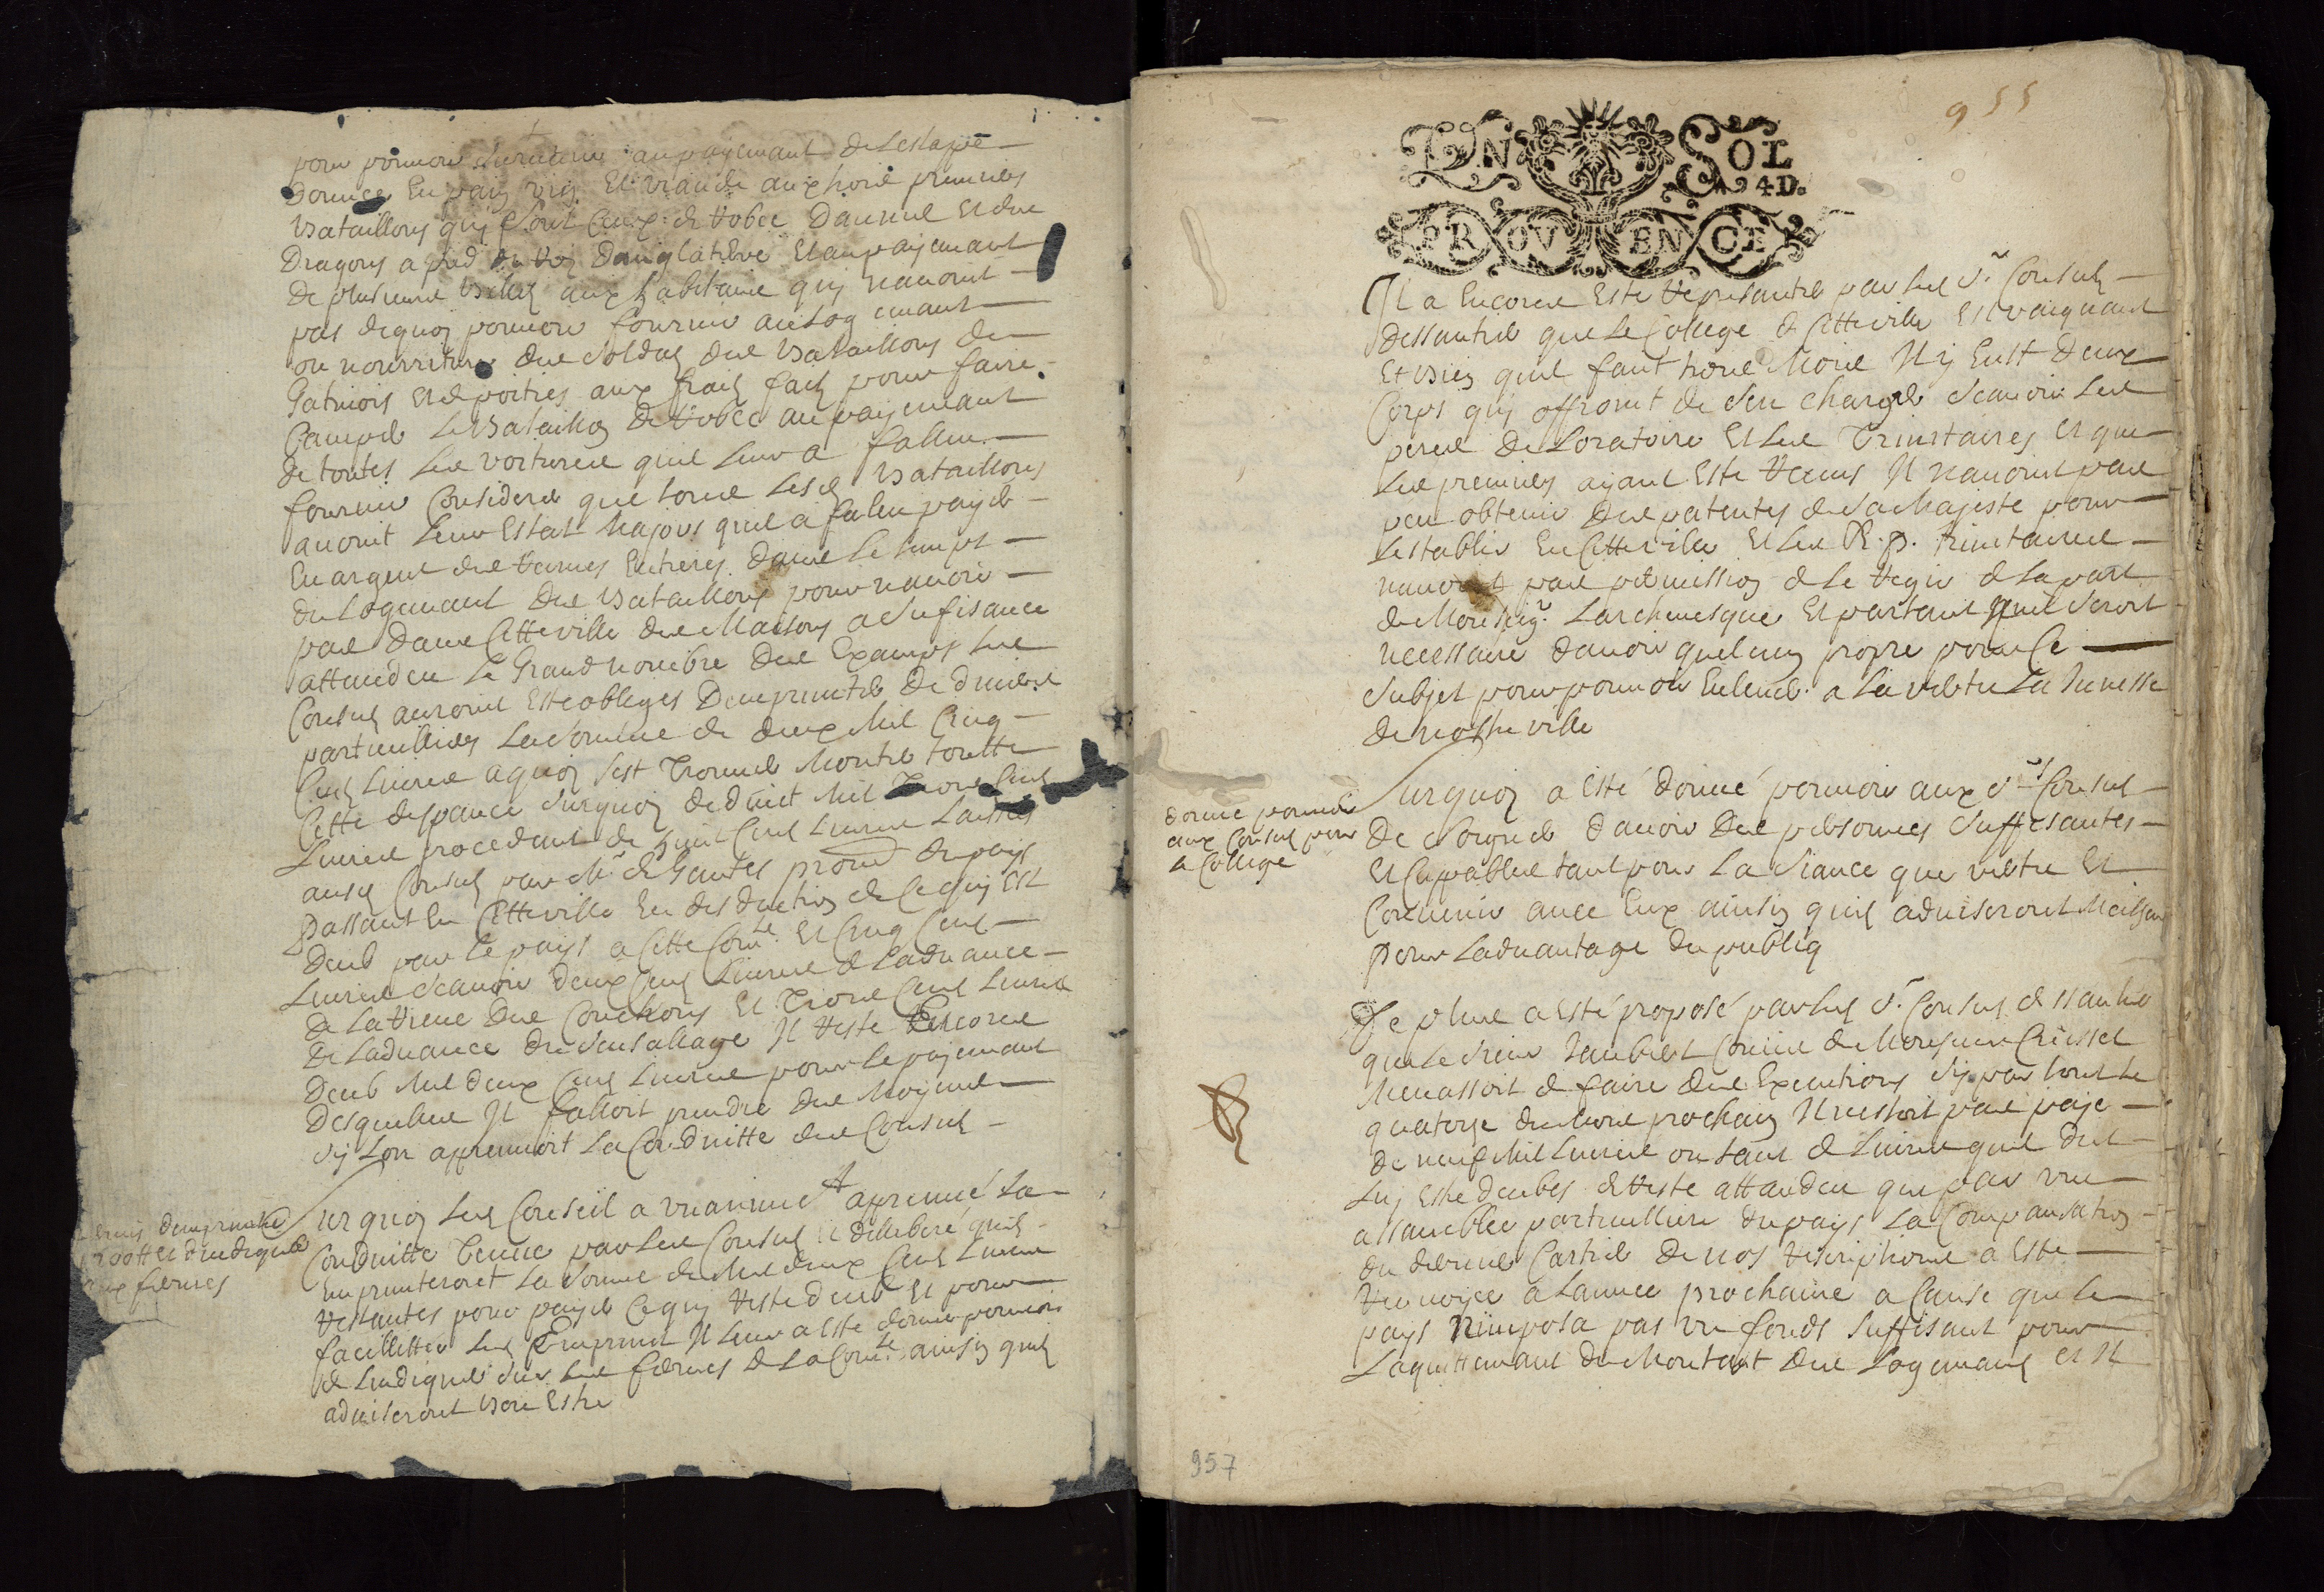 pour pouvoir survenir au payemant de lestape
donnee en pain vin et viande aux trois premiers
bataillons quy sont ceux de Robec Dauvine et des
Dragons a pied du Roy Dangleterre et au payemant
de plusieurs billes aux habitans quy navoint
pas dequoy pouvoir fournir au logemant
ou nourriture des soldas des bataillons de
Gatinois et de poities aux frais fais pour faire
camper le bataillon de Robec au payemant
de toutes les voitures quil leur a fallu
fournir considere que tous lesd bataillons
avoint leur Estat Major quil a falleu payer
en argent des Rames entieres dans le temps
du logemant des bataillons pour navoir
pas dans cette ville des Maisons a sufisance
attandeu le Grand nombre des Exampts les
Consuls auroint este obliges Demprunter de divers
particulliers la somme de deux Mil Cinq
Cens livres aquoy sest trouve Monter toutte
Cette despance surquoy deduict Mil trois Cens
livres procedant de huit Cens livres laisses
ausd Consuls par Mr de Gantes procur du pays
passant en cette ville en desduction de ce quy est
deub par le pays a cette Comte et Cinq Cens
livres scavoir deux Cens livres de ladvance
de la Reve des Couchons et trois Cens livres
de ladvance du Sensallage Il Reste Encores
deub Mil deux Cens livres pour le payemant
desquelles Il falloit prendre des Moyens
sy lon approuvoit la Conduitte des Consuls
Surquoy led Conseil a unanimet approuvé la
Conduitte tenue par les Consuls et delliberé quils
emprunteront la somme de Mil deux Cens livres
restantes pour payer ce quy reste deub et pour
facilliter led Emprunt Il leur a este donne pouvoir
de lindiquer sur les fermes de la Comte ainsin quils
adviseront bon Estre
demprunter
1200ttt et dindiquer
aux fermes
955
UN SOL
4D.
PROVENCE
Il a Encores Este Represanté par les srs Consuls
dessantres que le College de cette ville est vaiquant
et bien quil fant trois Mois Il y eust deux
Corps quy offroint de sen charger scavoir les
peres de Loratoire et les Trinitaires et que
les premiers ayant este Receus Il navoint pas
peu obtenir des patantes de sa Majeste pour
sestablir en cette ville et les R. P. Trinitaires
navoint pas permission de le Regir de la part
de Monseigr Larchevesque et partant quil seroit
necessaire davoir quelcun propre pour ce
subjet pour pouvoir enlever a la vertu la Junesse
de nostre ville
Surquoy a esté donné pouvoir aux srs Consuls
de soigner davoir des personnes suffisantes
et capables tant pour la siance que vertu et
Convenir avec Eux ainsin quils adviseront Meilheur
pour ladvantage du publiq
donne pouvoir
aux Consuls pour
le College
De plus a esté proposé par les srs Consuls dessantres
que le sieur Jaubert Comis de Monsieur Creisset
Menassoit de faire des Executions sy par tout le
quatorze du Mois prochain Il nestoit pas paye
de neuf Mil livres ou tant de livres quil dict
luy estre deubes de Reste attandeu que par une
assamblee particulliere du pays la Compansation
du dernier Cartier de nos Rescriptions a este
Renvoyee a lannee prochaine a Cause que le
pays nimposa pas un fonds suffisant pour
laquittemant du Montant des logemans et Il
957